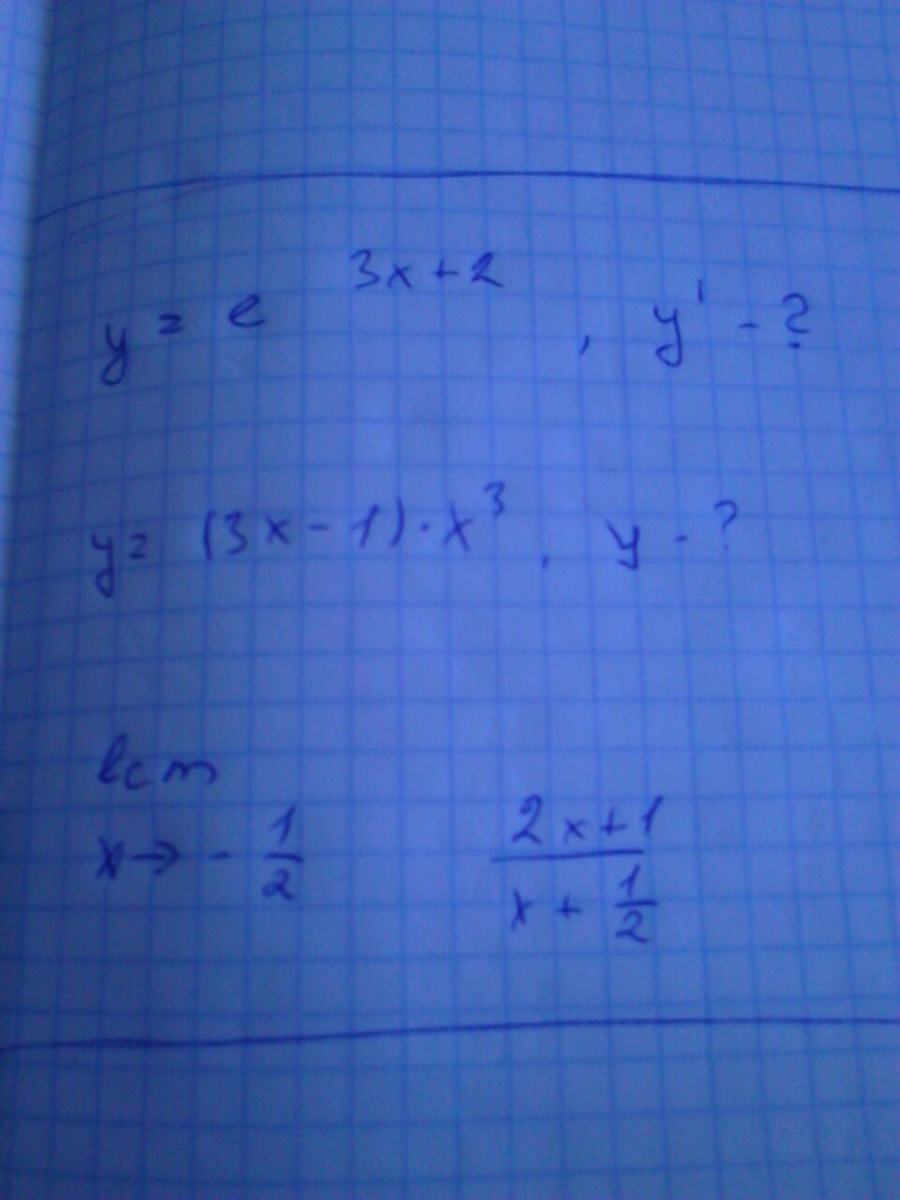 y = e^{3x+2}, y' - ?
y = (3x - 1) · x^3, y - ?
lim
x → - 1/2   (2x+1)/(x + 1/2)